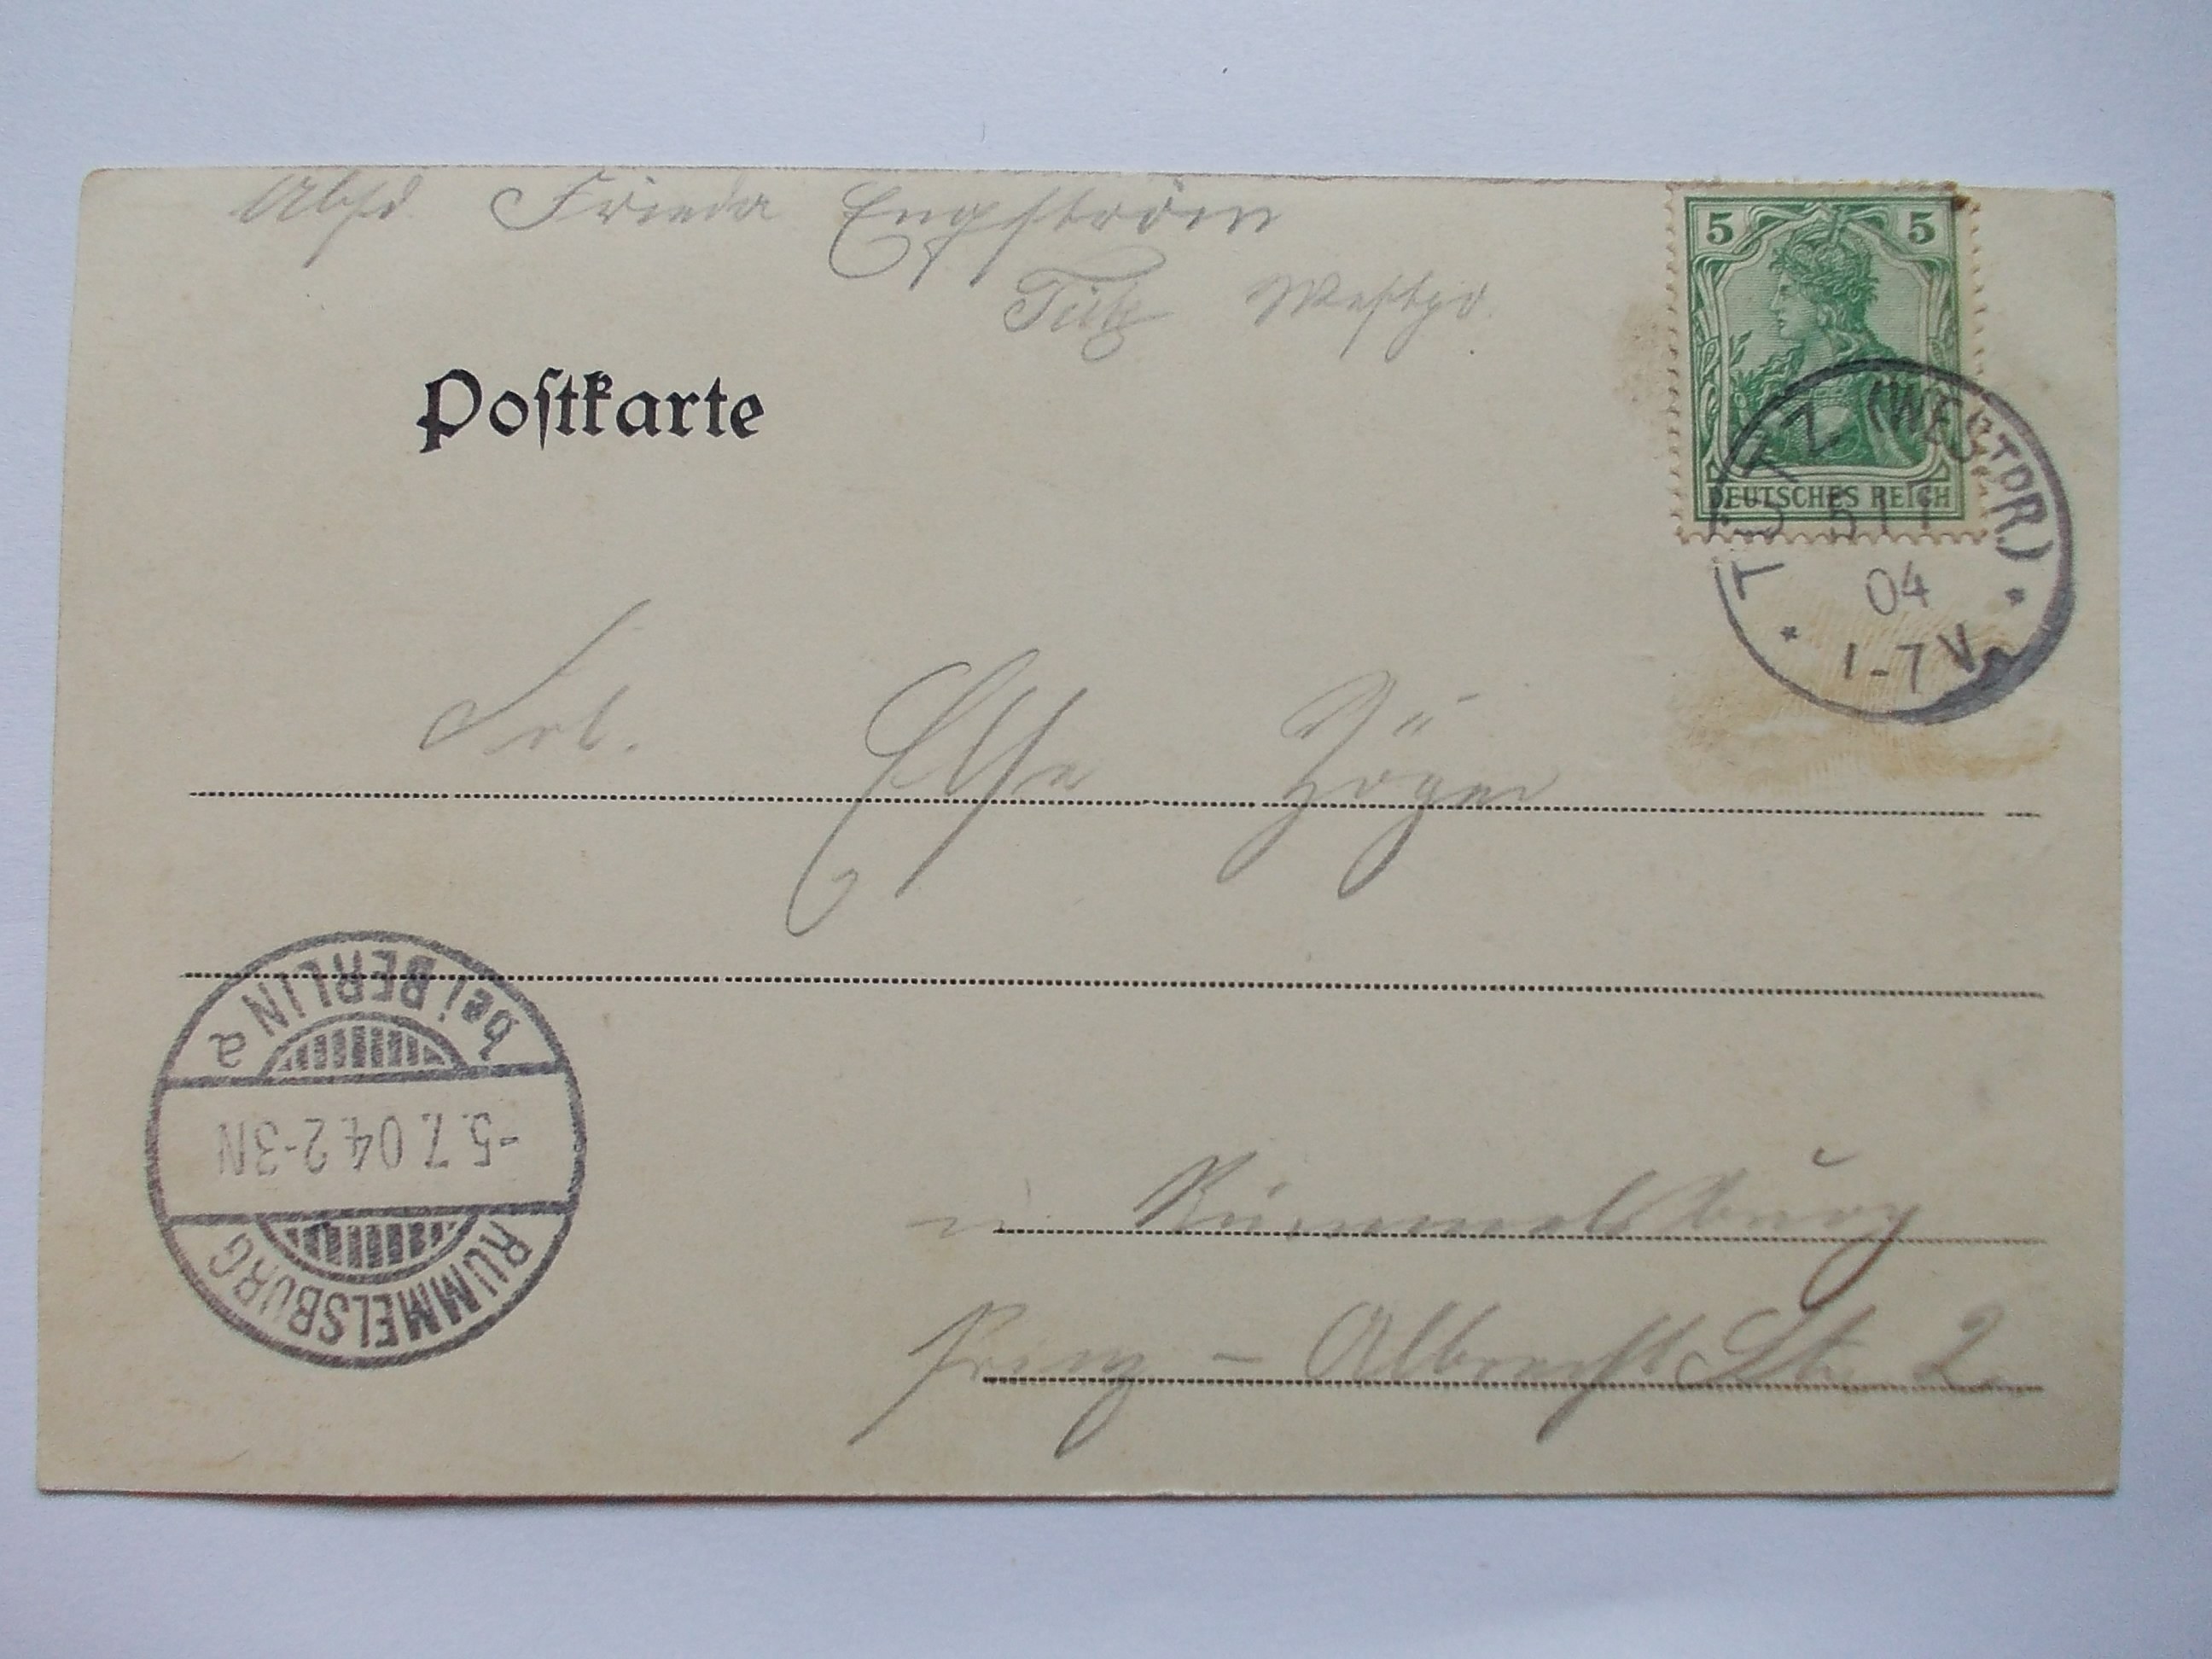 Absd. Frieda Engström
Tütz Westpr.
5 5
DEUTSCHES REICH
Poſtkarte
TÜTZ (WESTPR.)
5 7
04
1-7V
Frl. Else
bei BERLIN a
-5.7.04.2-3N
RUMMELSBURG
in Rummelsburg
Prinz-Albrecht Str. 2.